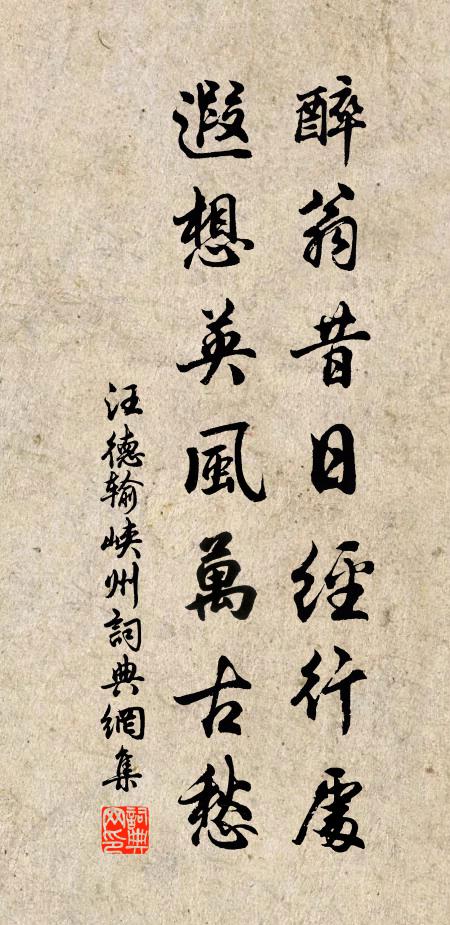 醉翁昔日經行處
遐想英風萬古愁
汪德输峡州詞典網集
詞典網印